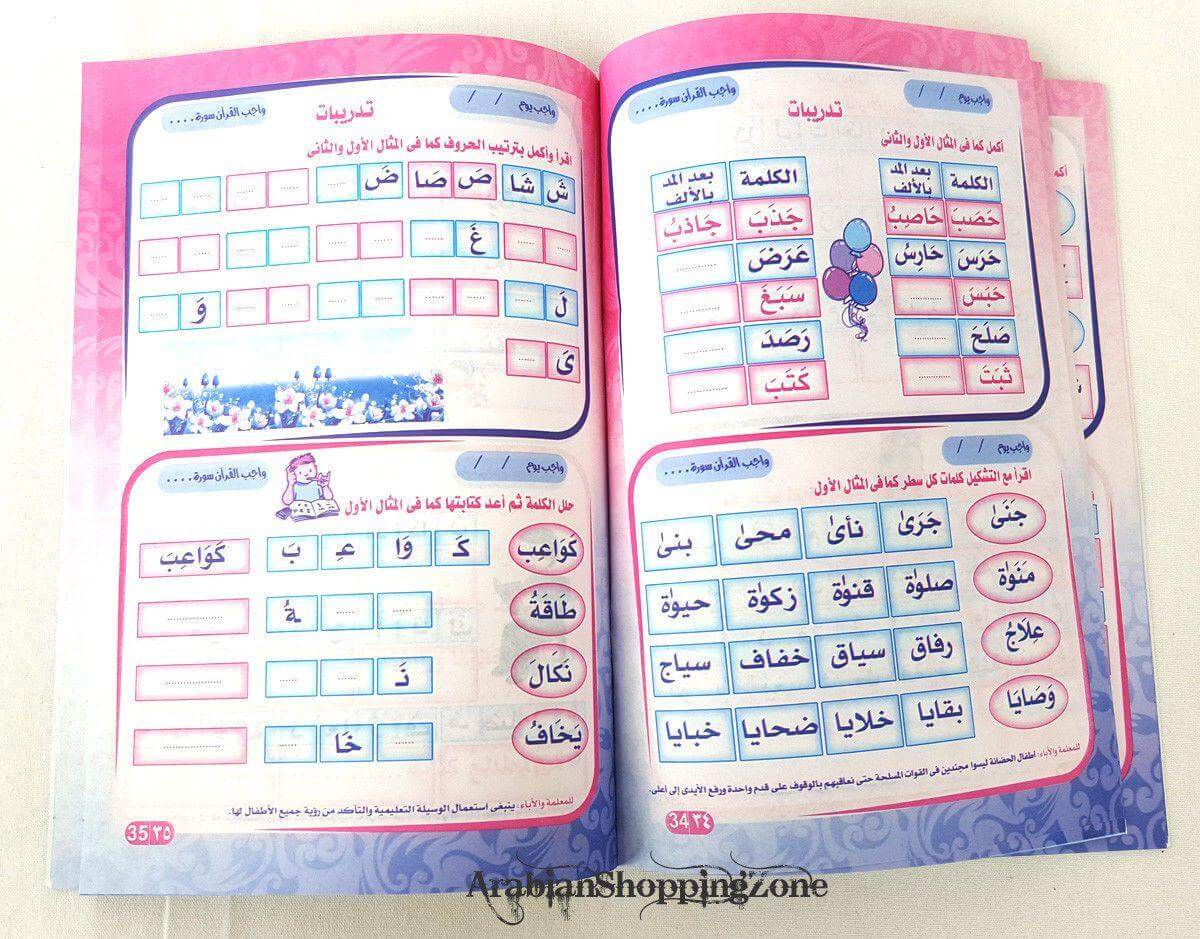 واجب يوم / / واجب القرآن سورة....
تدريبات
أكمل كما فى المثال الأول والثانى
الكلمة بعد المد بالألف الكلمة بعد المد بالألف
حَصَبَ حَاصِبُ جَذَبَ جَاذبُ
حَرَسَ حَارِسُ عَرَضَ ............
حَبَسَ ............ سَبَغَ ............
صَلَحَ ............ رَصَدَ ............
ثَبَتَ ............ كَتَبَ ............
واجب يوم / / واجب القرآن سورة....
اقرأ مع التشكيل كلمات كل سطر كما فى المثال الأول
جَنَىٰ جَرَىٰ نأىٰ محىٰ بنىٰ
مَنَوٰة صلوٰة قنوٰة زكوٰة حيوٰة
عِلَاجُ رفاق سياق خفاف سياج
وَصَايَا بقايا خلايا ضحايا خبايا
للمعلمة والآباء: أطفال الحضانة ليسوا مجندين فى القوات المسلحة حتى نعاقبهم بالوقوف على قدم واحدة ورفع الأيدى إلى أعلى.
34 ٣٤
واجب يوم / / واجب القرآن سورة....
تدريبات
اقرأ وأكمل بترتيب الحروف كما فى المثال الأول والثانى
شَ شَا صَ صَا ضَ ...... ...... ...... ...... ......
...... ...... غَ ...... ...... ...... ...... ...... ...... ......
لَ ...... ...... ...... ...... ...... ...... ...... وَ ......
ىَ ......
واجب يوم / / واجب القرآن سورة....
حلل الكلمة ثم أعد كتابتها كما فى المثال الأول
كَوَاعِبَ كَـ وَا عِـ بَ كَوَاعِبَ
طَاقَةُ ...... ...... ـةُ ............
نَكَالَ نَـ ...... ...... ............
يَخَافُ ...... خَا ...... ............
للمعلمة والآباء: ينبغى استعمال الوسيلة التعليمية والتأكد من رؤية جميع الأطفال لها.
35 ٣٥
ArabianShoppingZone